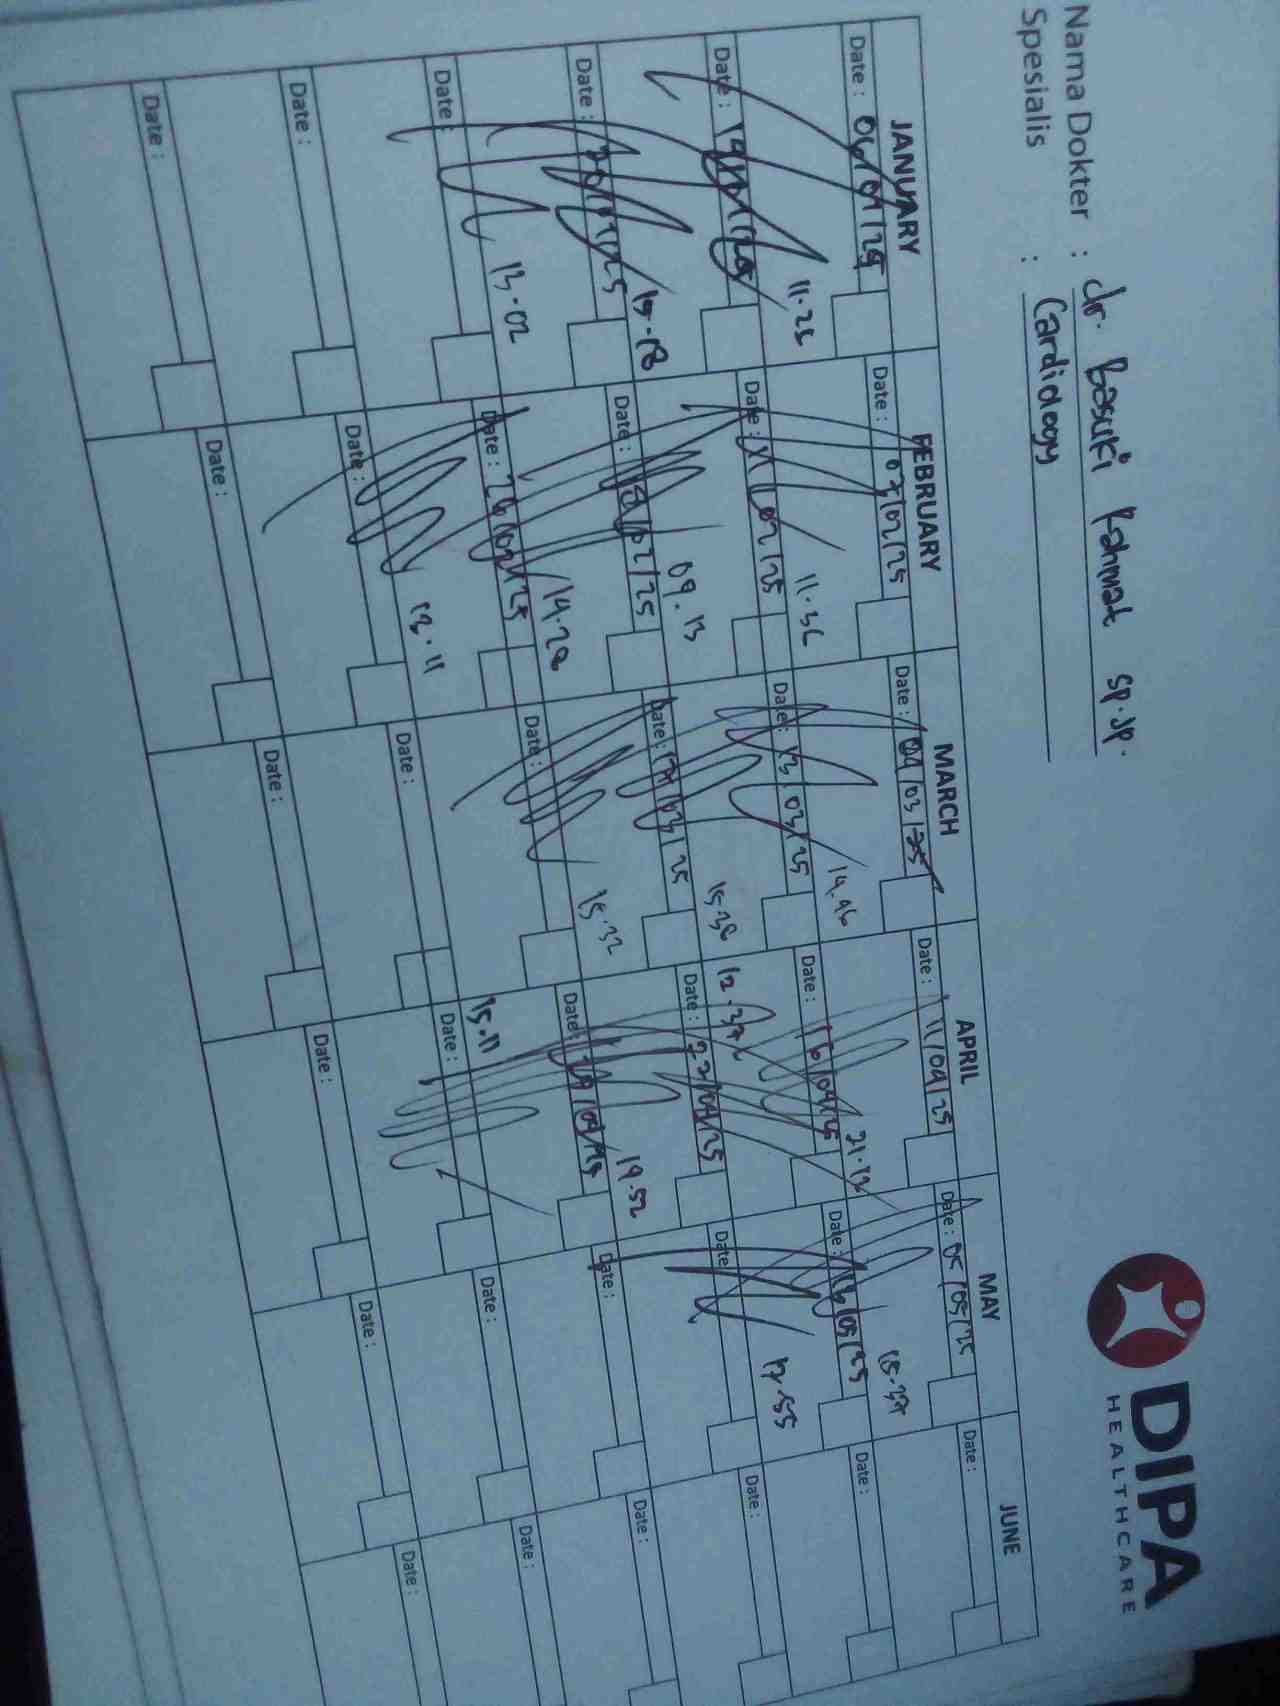 DIPA
HEALTHCARE
Nama Dokter : dr. Basuki Rahmat SP.JP.
Spesialis : Cardiology
JANUARY FEBRUARY MARCH APRIL MAY JUNE
Date : 06/01/25 Date : 03/02/25 Date : 04/03/25 Date : 11/04/25 Date : 05/05/25 Date :
11.25 11.36 14.46 21.12 15.37
Date : Date : 11/02/25 Date : 13/03/25 Date : 16/04/25 Date : 16/05/25 Date :
15.18 09.13 15.38 12.37 17.55
Date : 30/01/25 Date : 18/02/25 Date : 17/03/25 Date : 22/04/25 Date : Date :
13.02 14.28 15.32 19.52
Date : Date : 26/02/25 Date : Date : 29/04/25 Date : Date :
13.11 15.11
Date : Date : Date : Date : Date : Date :
Date : Date : Date : Date : Date : Date :